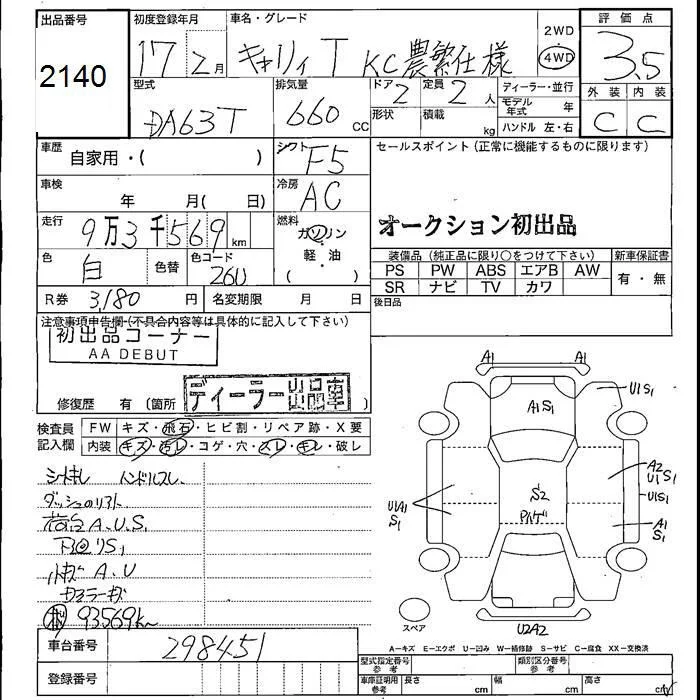 出品番号
2140
初度登録年月
17 2月
車名・グレード
キャリィ T KC農繁仕様
2WD
4WD
評価点
3.5
型式
DA63T
排気量
660 CC
ドア
2
定員
2 人
形状
積載
kg
ディーラー・並行
モデル年式 年
ハンドル 左・右
外装 内装
C C
車歴
自家用・( )
シフト
F5
セールスポイント(正常に機能するものに限ります)
オークション初出品
車検
年 月( 日)
冷房
AC
走行
9万3千569 km
燃料
ガソリン
軽・油
( )
色
白
色替
色コード
26U
装備品(純正品に限り○をつけて下さい)
新車保証書
PS PW ABS エアB AW
SR ナビ TV カワ
有・無
R券 3,180 円
名変期限 月 日
後日品
注意事項申告欄(不具合内容等は具体的に記入して下さい)
初出品コーナー
AA DEBUT
修復歴 有 (箇所 )
ディーラー出品車
検査員記入欄
FW キズ・飛石・ヒビ割・リペア跡・X要
内装 キズ・汚レ・コゲ・穴・スレ・キレ・破レ
シートキレ ハンドルスレ
荷台A.U.S.
小キズA.U
93569km
車台番号
298451
登録番号
A1
A1
U1S1
A1S1
A2
U1S1
U1S1
U1A1
S1
S2
A1
S1
スペア
U2A2
A－キズ E－エクボ U－凹み W－補修跡 S－サビ C－腐食 XX－交換済
型式指定番号
参考
類別区分番号
参考
車庫証明用
参考
長さ cm
幅 cm
高さ cm